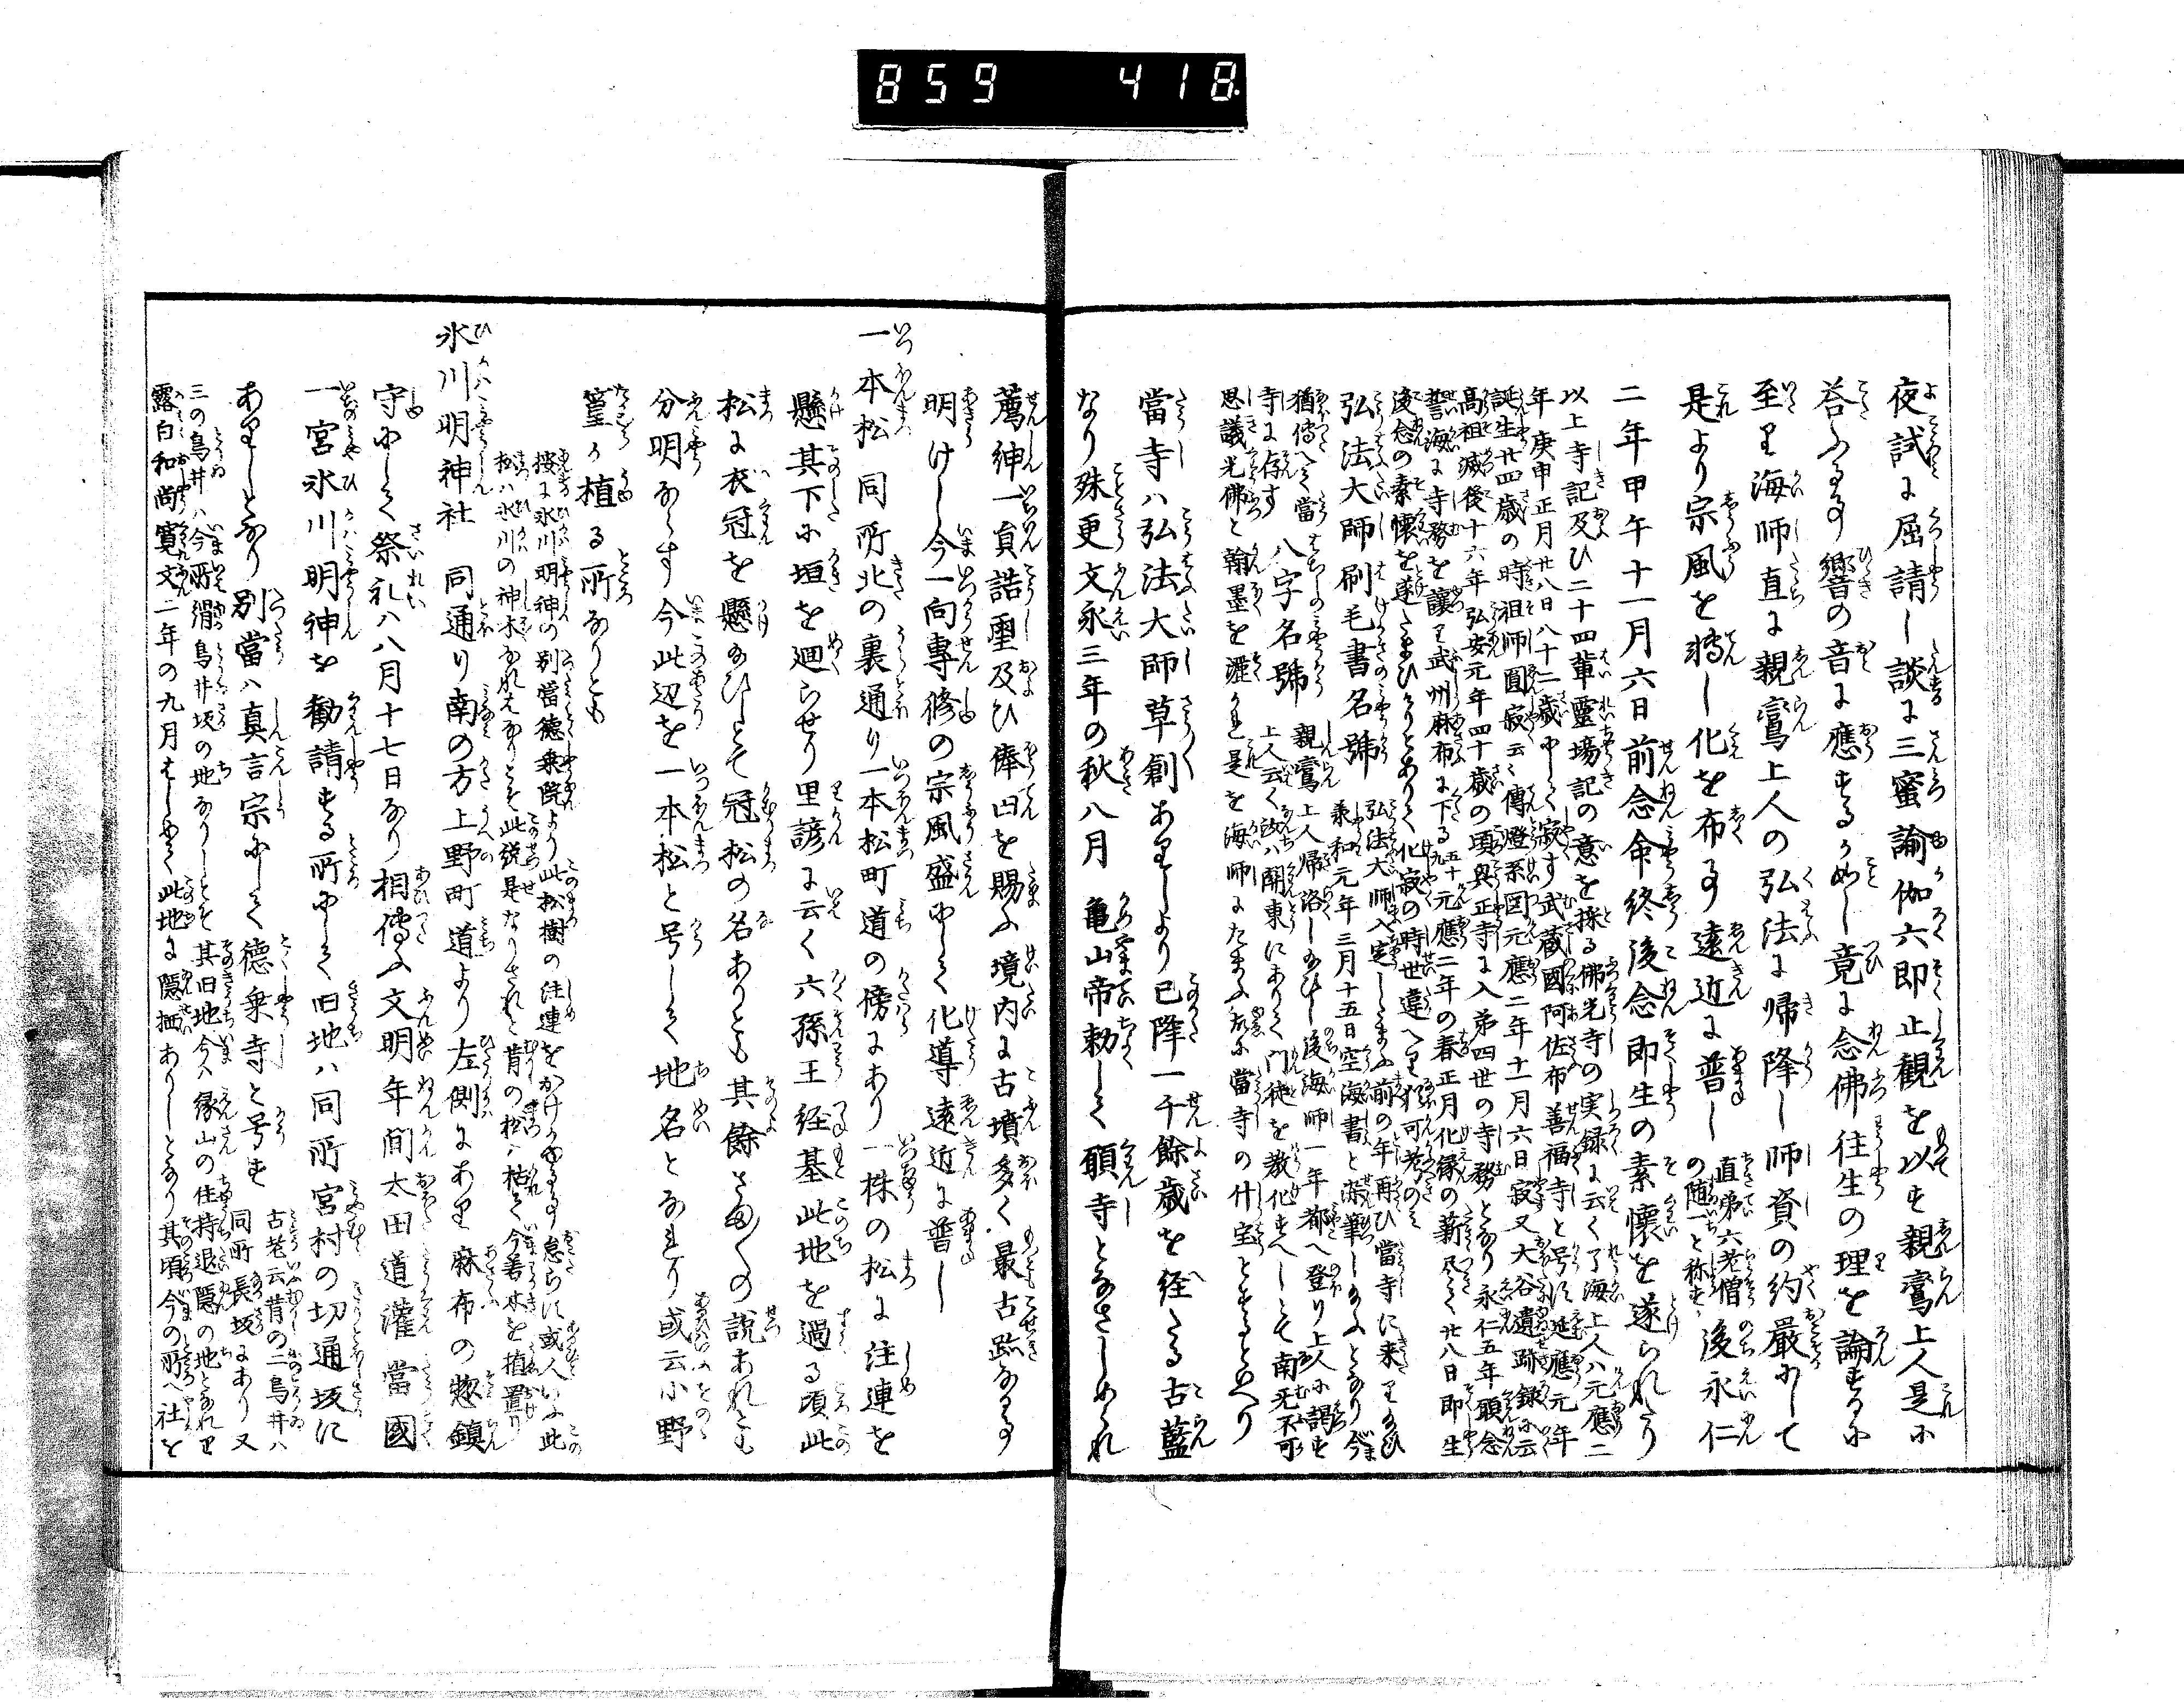 859 418
夜試に屈請し談に三蜜諭伽六即止観を以す親鸞上人是に
荅ふる事響の音に應するか如し竟に念佛往生の理を論するに
至り海師直に親鸞上人の弘法に帰降し師資の約厳にして
是より宗風を轉し化を布る事遠近に普し 直弟六老僧の随一と称す 後永仁
二年甲午十一月六日前念命終後念即生の素懐を遂られたり
以上寺記及ひ二十四輩靈場記の意を採る佛光寺の実録に云く了海上人ハ元應二
年庚申正月廿八日八十二歳にして寂す武蔵國阿佐布善福寺と号に延應元年
誕生廿四歳の時祖師圓寂云く傳燈系図元應二年十一月六日寂又大谷遺跡録に云
高祖滅後十六年弘安元年四十歳の頃興正寺に入弟四世の寺務となり永仁五年願念
誓海に寺務を譲り武州麻布に下る五十九元應二年の春正月化縁の薪尽て廿八日即生
後念の素懐を遂たまひけりとありて化寂の時世違へり
弘法大師刷毛書名號 弘法大師入定したまふ前の年再ひ當寺に来り
承和元年三月十五日空海書と染筆したまふとなり今
猶傳へて當寺に存す 八字名號 親鸞上人帰洛したまひし後海師一年都へ登り上人に謁す
上人云く汝ハ関東にありて門徒を教化すへしとて南无不可
思議光佛と翰墨を灑かれ是を海師にたまふ故に當寺の什宝とするといへり
當寺ハ弘法大師草創ありしより已降一千餘歳を経たる古藍
なり殊更文永三年の秋八月 亀山帝勅して願寺となさしめられ
薦紳一眞誥璽及ひ俸田を賜ふ境内に古墳多く最古跡なる事
明けし今一向專修の宗風盛にして化導遠近に普し
一本松 同所北の裏通り一本松町道の傍にあり一株の松に注連を
懸其下に垣を廻らせり里諺に云く六孫王経基此地を過る頃此
松に衣冠を懸給ひしとて冠松の名ありとも其餘さまくの説あれとも
分明ならす今此辺を一本松と号して地名となれり或云小野
篁か植る所なりとも
按に氷川明神の別當徳乗院より此松樹の注連をかけかゆる事怠らに或人いふ此
松ハ氷川の神木なれはなりとそ此説是なりされと昔の松ハ枯て今若木を植置り
氷川明神社 同通り南の方上野町道より左側にあり麻布の惣鎮
守にして祭礼ハ八月十七日なり相傳ふ文明年間太田道灌當國
一宮氷川明神を勸請する所にして旧地ハ同所宮村の切通坂に
ありしとなり別當ハ真言宗にして徳乗寺と号す 古老云昔の二鳥井ハ
同所長坂にあり又
三の鳥井ハ今所謂鳥井坂の地なりしとそ其旧地今ハ縁山の住持退隠の地となれり
露白和尚寛文二年の九月はしめて此地に隠栖ありしとなり其頃今の所へ社を